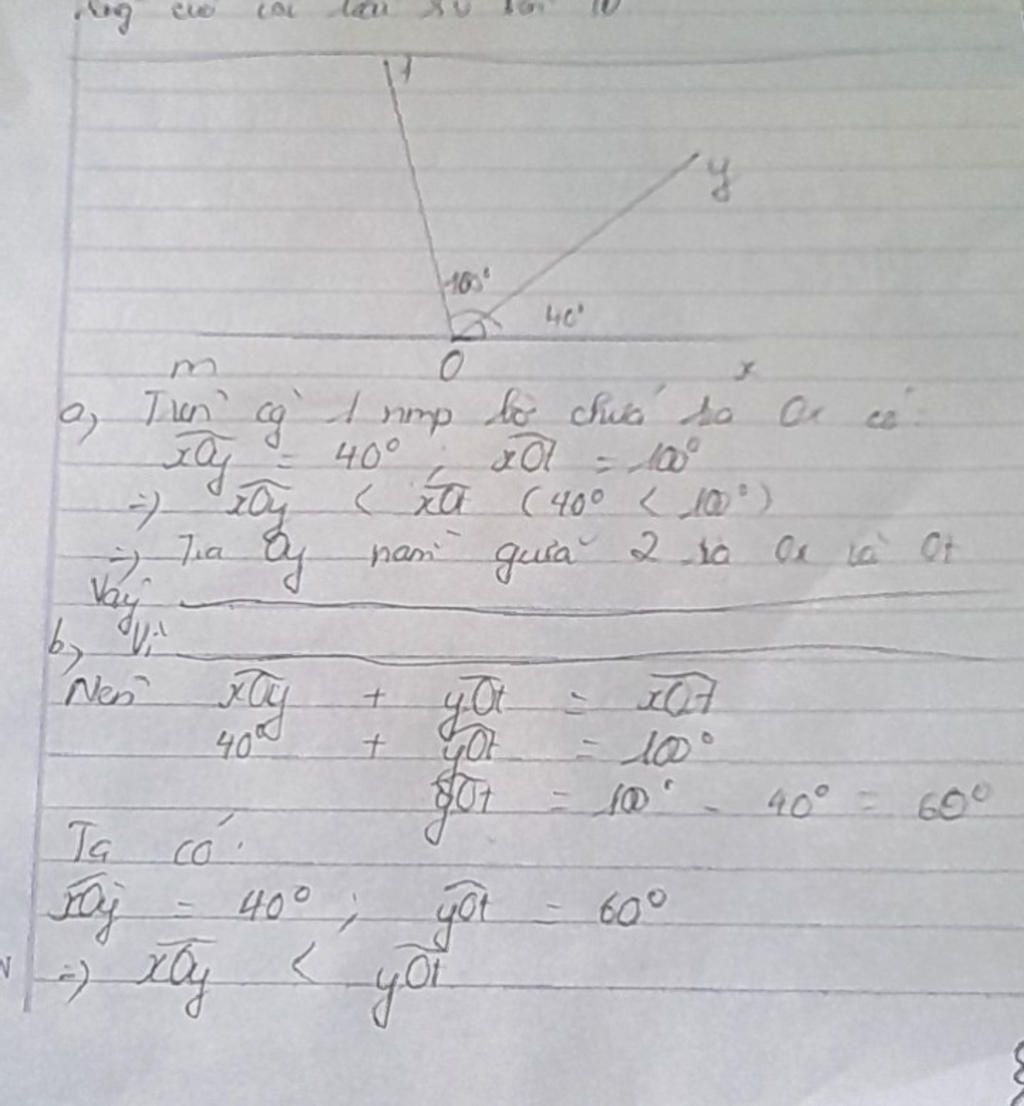 t
y
100°
40°
m O x
a, Trên cg 1 nmp bờ chứa tia Ox có:
xOy = 40° ; xOt = 100°
=> xOy < xOt (40° < 100°)
=> Tia Oy nằm giữa 2 tia Ox và Ot
Vậy
b, Vì
Nên xOy + yOt = xOt
40° + yOt = 100°
yOt = 100° - 40° = 60°
Ta có:
xOy = 40° ; yOt = 60°
=> xOy < yOt